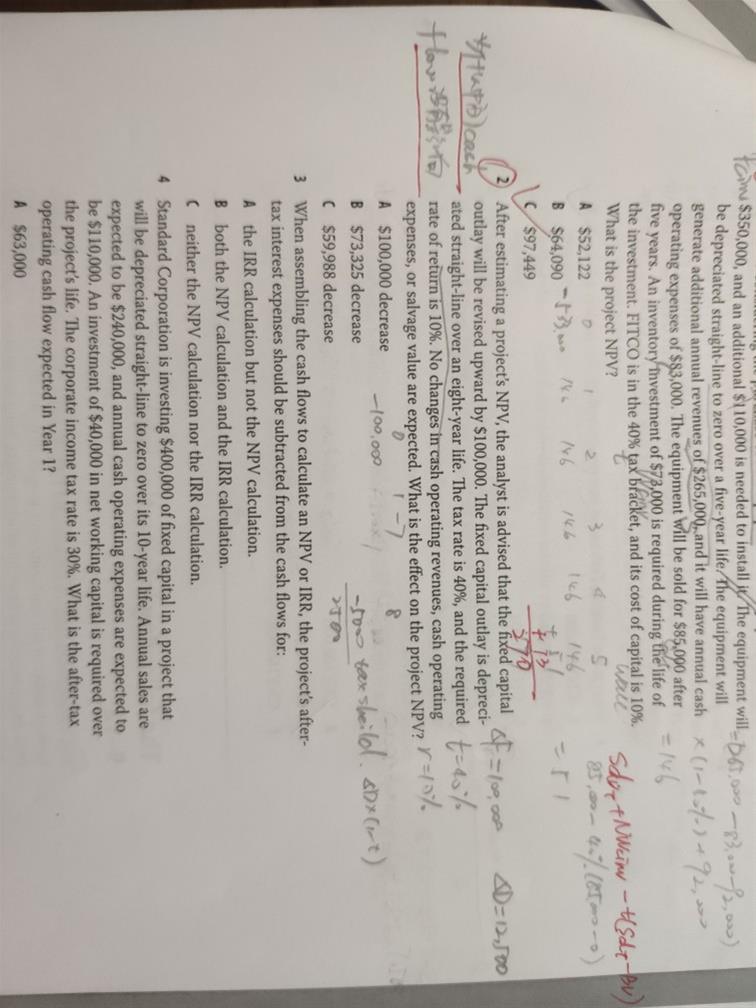 $350,000, and an additional $110,000 is needed to install it. The equipment will
be depreciated straight-line to zero over a five-year life. The equipment will
generate additional annual revenues of $265,000, and it will have annual cash
operating expenses of $83,000. The equipment will be sold for $85,000 after
five years. An inventory investment of $73,000 is required during the life of
the investment. FITCO is in the 40% tax bracket, and its cost of capital is 10%.
What is the project NPV?
A $52,122
B $64,090
C $97,449
0 1 2 3 4 5
146 146 146 146 146
= 146
= 51
+ 51
+ 73
270
2 After estimating a project's NPV, the analyst is advised that the fixed capital
outlay will be revised upward by $100,000. The fixed capital outlay is depreci-
ated straight-line over an eight-year life. The tax rate is 40%, and the required
rate of return is 10%. No changes in cash operating revenues, cash operating
expenses, or salvage value are expected. What is the effect on the project NPV?
cash
flow
ΔF=100,000 ΔD=12,500
t=40%
r=10%
A $100,000 decrease
B $73,325 decrease
C $59,988 decrease
0 1-7 8
-100,000
-5000 tax sheild.
3 When assembling the cash flows to calculate an NPV or IRR, the project's after-
tax interest expenses should be subtracted from the cash flows for:
A the IRR calculation but not the NPV calculation.
B both the NPV calculation and the IRR calculation.
C neither the NPV calculation nor the IRR calculation.
4 Standard Corporation is investing $400,000 of fixed capital in a project that
will be depreciated straight-line to zero over its 10-year life. Annual sales are
expected to be $240,000, and annual cash operating expenses are expected to
be $110,000. An investment of $40,000 in net working capital is required over
the project's life. The corporate income tax rate is 30%. What is the after-tax
operating cash flow expected in Year 1?
A $63,000